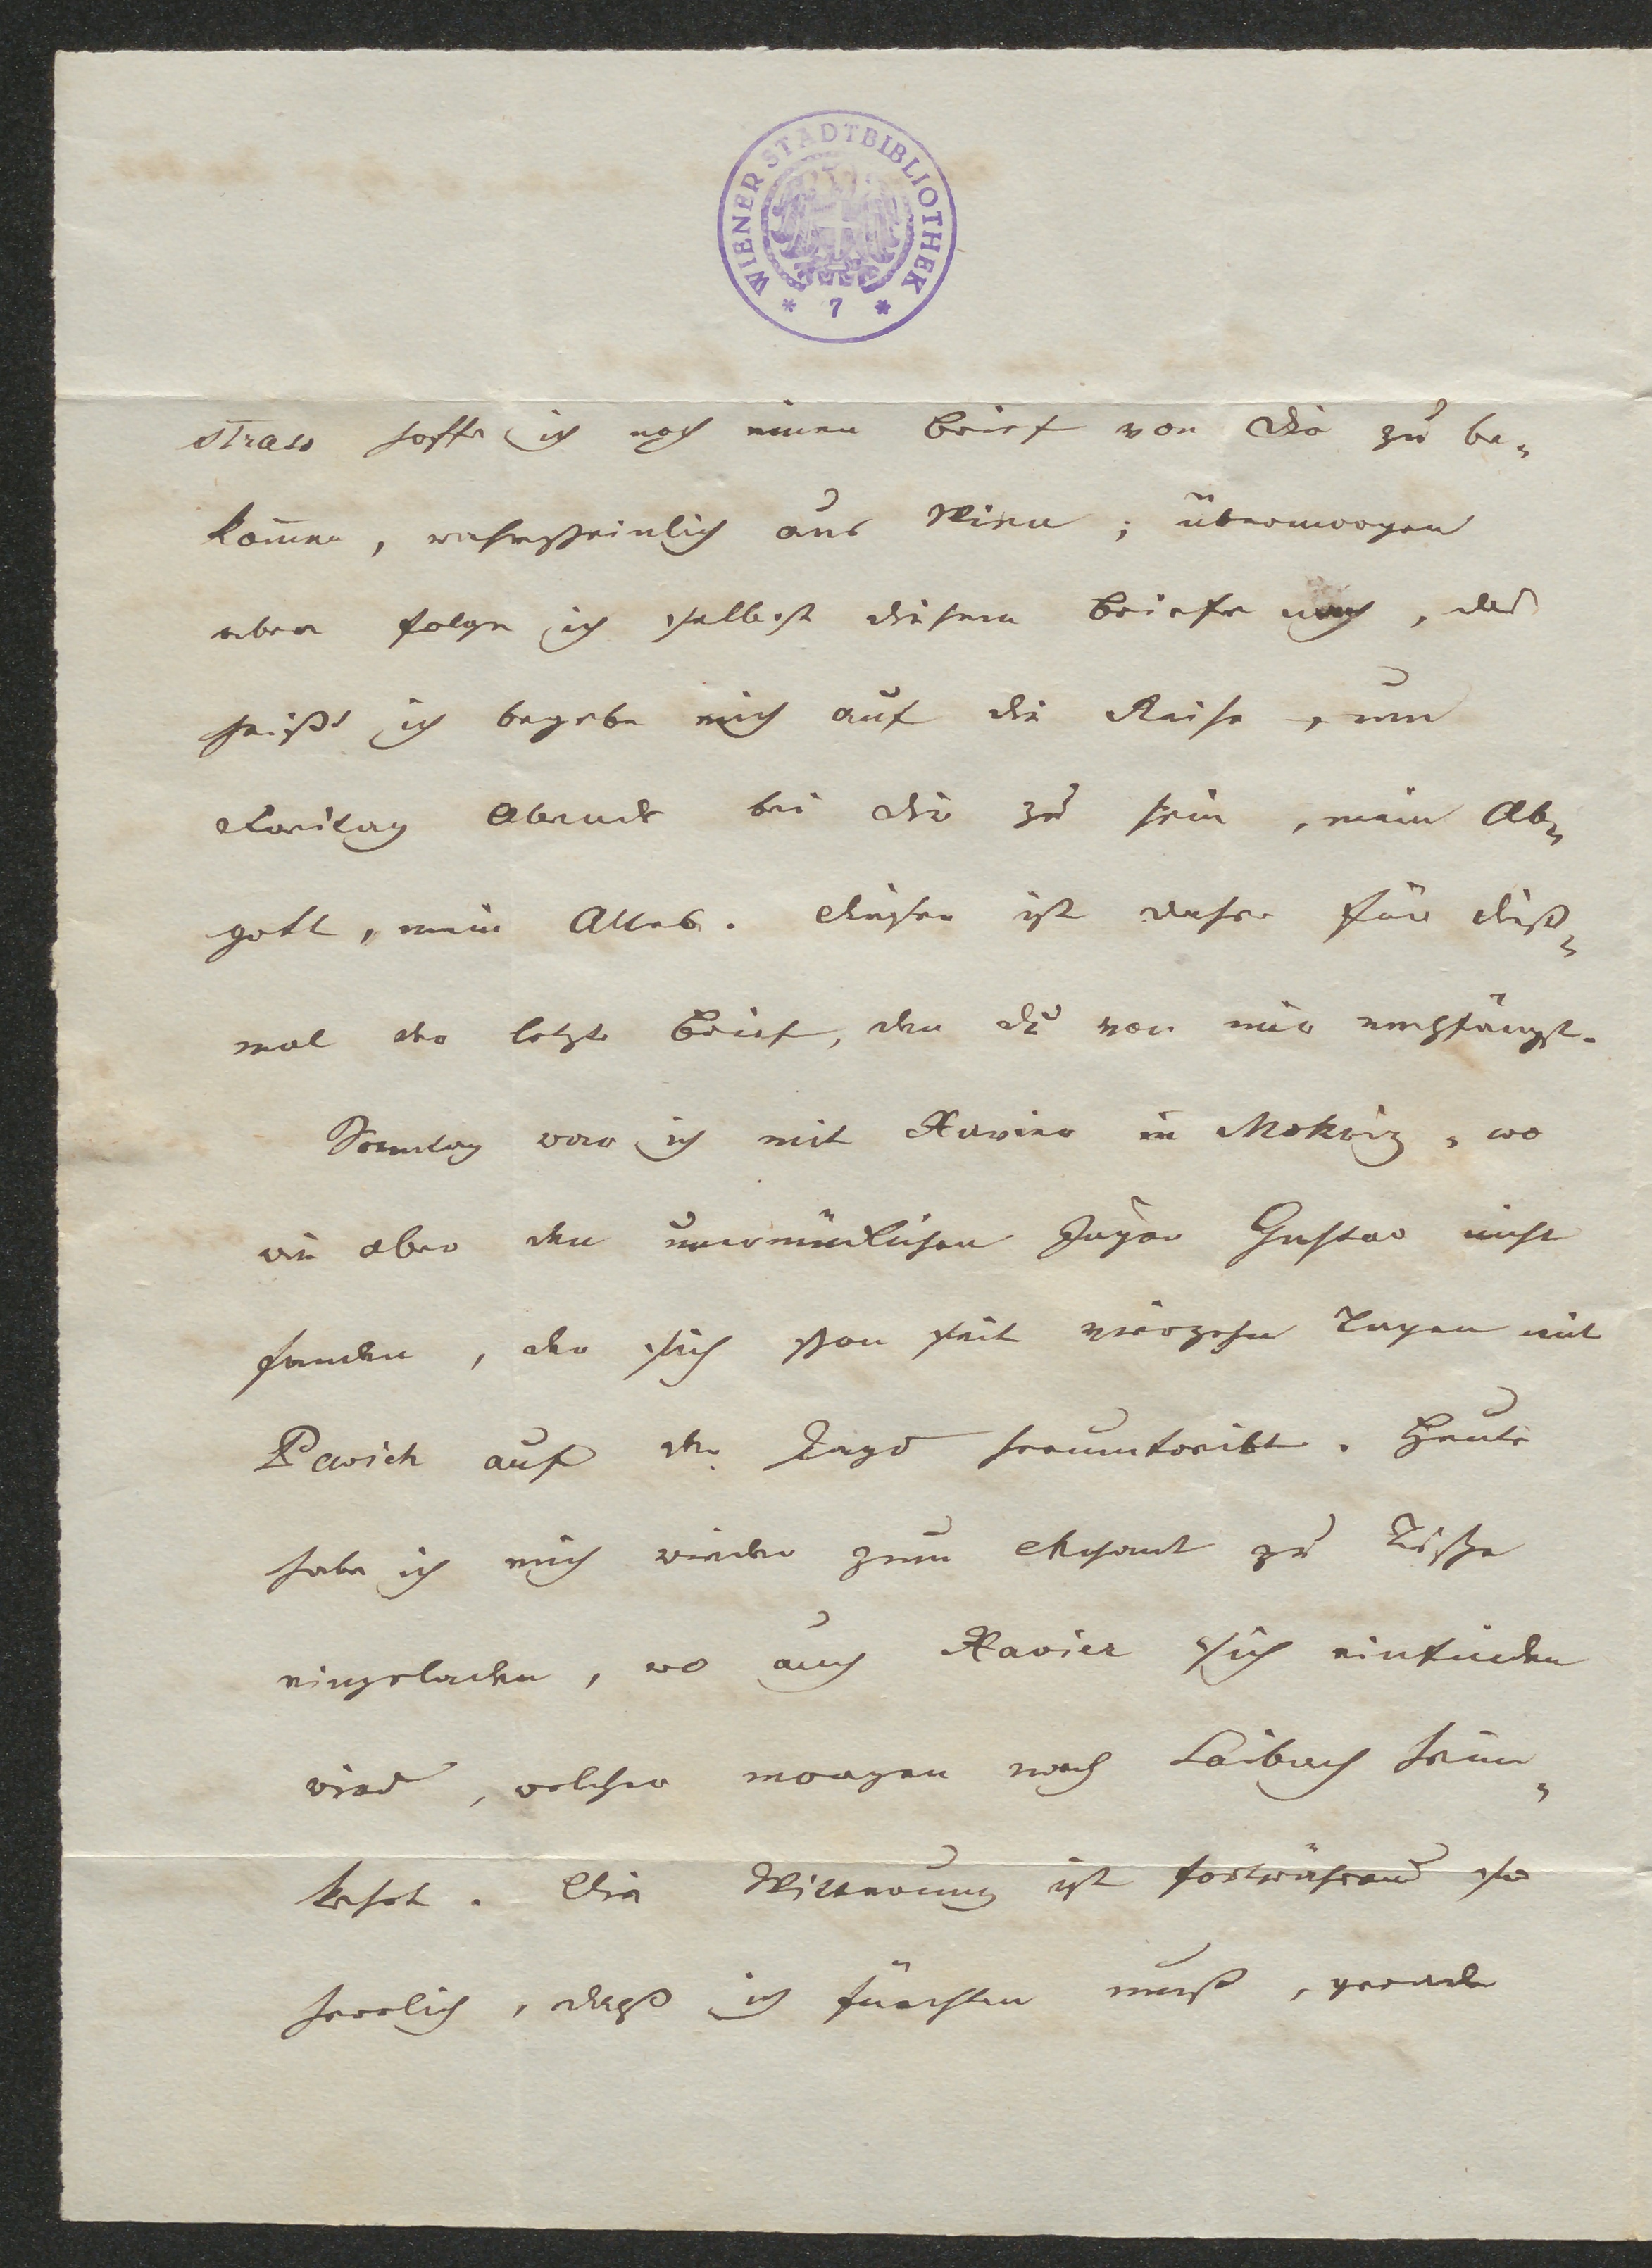 WIENER STADTBIBLIOTHEK
* 7 *
hoffe ich noch einen Brief von Dir zu be-
kom̅en, wahrscheinlich aus Wien; übermorgen
aber folge ich selbst diesem Briefe nach, das
heißt ich begebe mich auf die Reise, um
Freitag Abends bei Dir zu sein, mein Ab-
gott, mein Alles. Dieser ist daher für dieß-
mal der letzte Brief, den Du von mir empfängst.
Sonntag war ich mit Xavier in Mokriz, wo
wir aber den unermüdlichen Jäger Gustav nicht
fanden, der sich schon seit vierzehn Tagen mit
auf der Jagd herumtreibt. Heute
habe ich mich wieder zum Dechant zu Tische
eingeladen, wo auch Xavier sich einfinden
wird, welcher morgen nach Laibach heim-
kehrt. Die Witterung ist fortwährend so
herrlich, daß ich fürchten muß, gerade